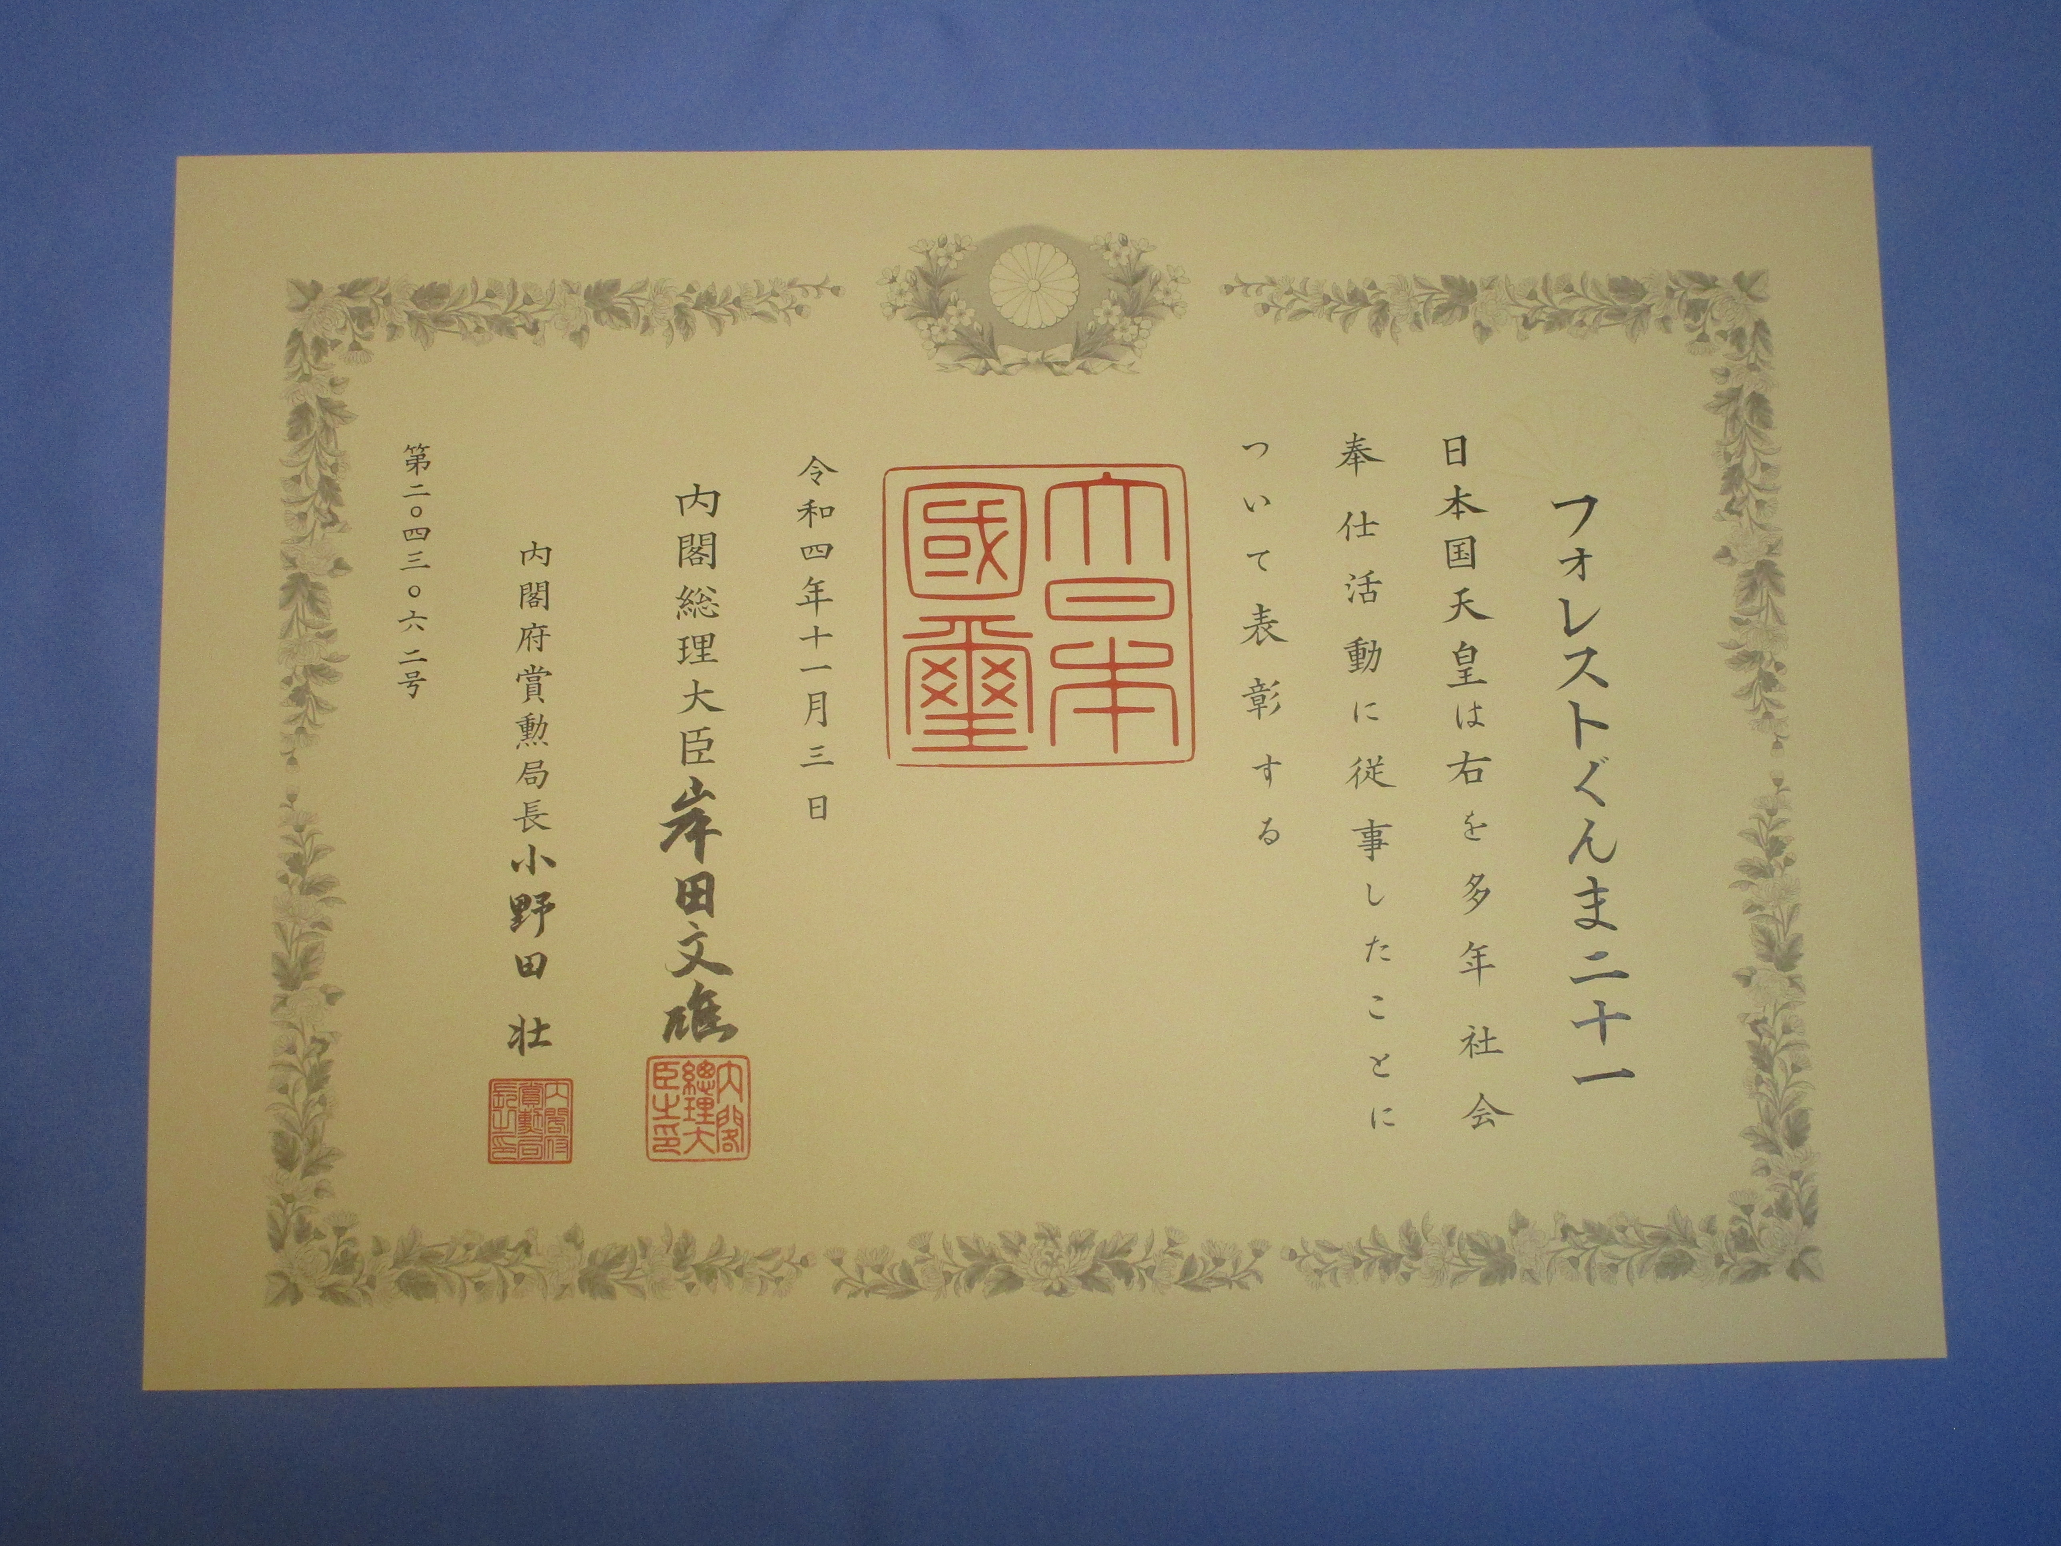 フォレストぐんま二十一
日本国天皇は右を多年社会
奉仕活動に従事したことに
ついて表彰する
大日本
國璽
令和四年十一月三日
内閣総理大臣 岸田文雄
内閣総理大臣之印
内閣府賞勲局長 小野田 壮
内閣府賞勲局長之印
第二〇四三〇六二号